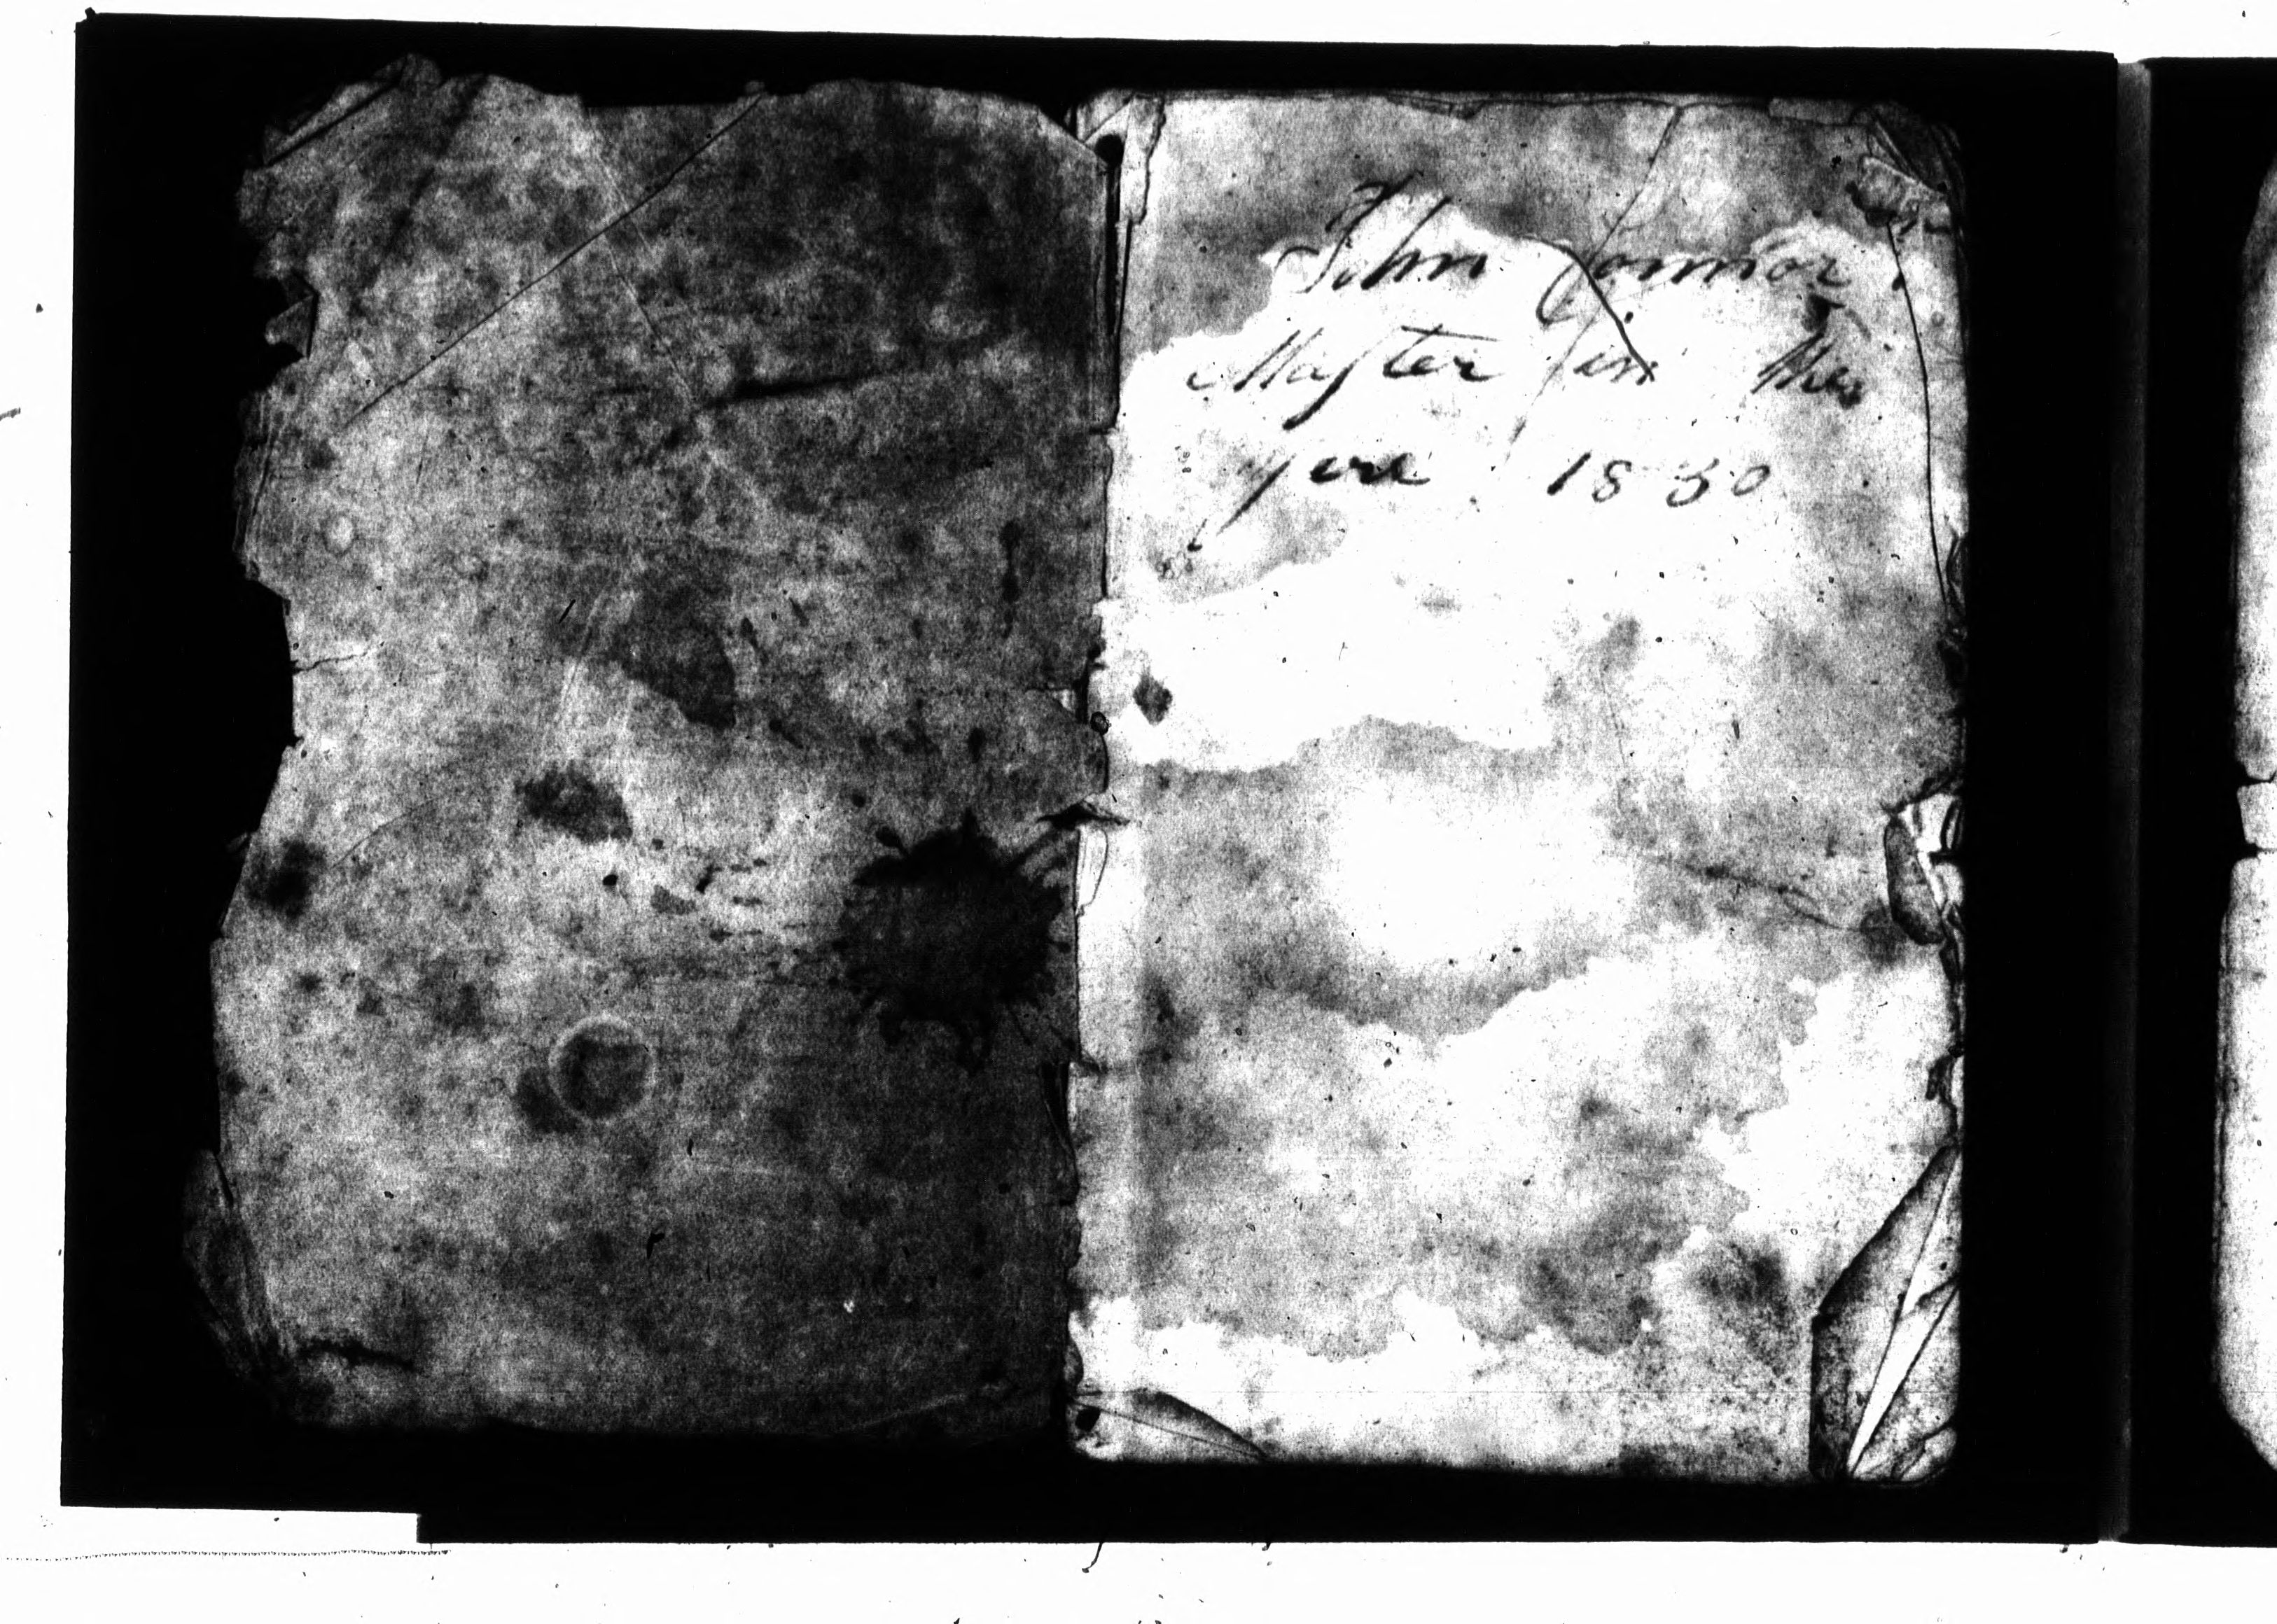 John Connor
Maſter in the
yere 1830